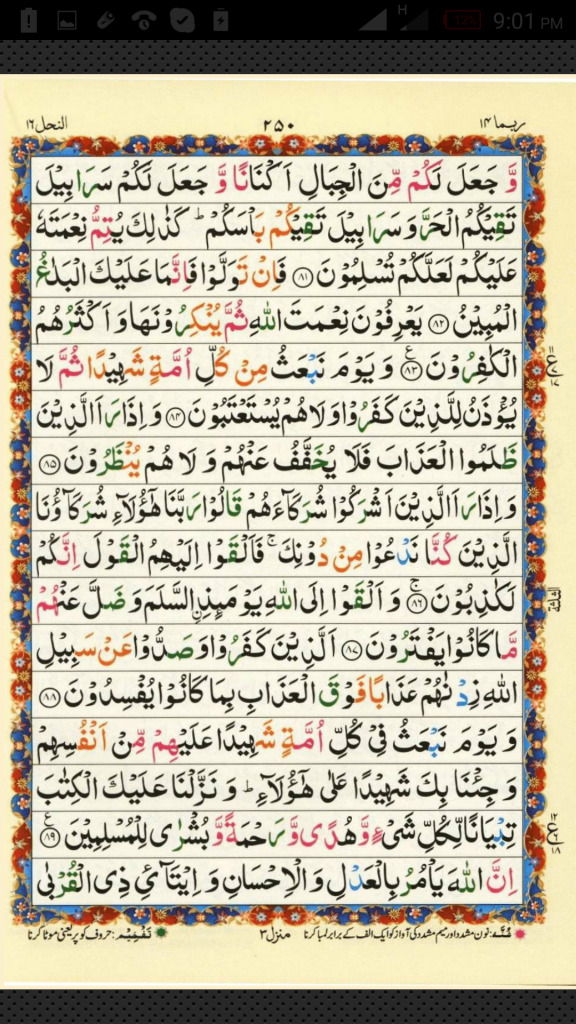 H 12% 9:01 PM
ربما ١٤ ٢٥٠ النحل ١٦
وَّ جَعَلَ لَكُمْ مِّنَ الْجِبَالِ اَكْنَانًا وَّ جَعَلَ لَكُمْ سَرَابِيْلَ
تَقِيْكُمُ الْحَرَّ وَ سَرَابِيْلَ تَقِيْكُمْ بَاْسَكُمْ ؕ كَذٰلِكَ يُتِمُّ نِعْمَتَهٗ
عَلَيْكُمْ لَعَلَّكُمْ تُسْلِمُوْنَ ﴿۸۱﴾ فَاِنْ تَوَلَّوْا فَاِنَّمَا عَلَيْكَ الْبَلٰغُ
الْمُبِيْنُ ﴿۸۲﴾ يَعْرِفُوْنَ نِعْمَتَ اللّٰهِ ثُمَّ يُنْكِرُوْنَهَا وَ اَكْثَرُهُمُ
الْكٰفِرُوْنَ ﴿۸۳﴾ وَ يَوْمَ نَبْعَثُ مِنْ كُلِّ اُمَّةٍ شَهِيْدًا ثُمَّ لَا
يُؤْذَنُ لِلَّذِيْنَ كَفَرُوْا وَ لَا هُمْ يُسْتَعْتَبُوْنَ ﴿۸۴﴾ وَ اِذَا رَاَ الَّذِيْنَ
ظَلَمُوا الْعَذَابَ فَلَا يُخَفَّفُ عَنْهُمْ وَ لَا هُمْ يُنْظَرُوْنَ ﴿۸۵﴾
وَ اِذَا رَاَ الَّذِيْنَ اَشْرَكُوْا شُرَكَآءَهُمْ قَالُوْا رَبَّنَا هٰۤؤُلَآءِ شُرَكَآؤُنَا
الَّذِيْنَ كُنَّا نَدْعُوْا مِنْ دُوْنِكَ ۚ فَاَلْقَوْا اِلَيْهِمُ الْقَوْلَ اِنَّكُمْ
لَكٰذِبُوْنَ ﴿۸۶﴾ۚ وَ اَلْقَوْا اِلَى اللّٰهِ يَوْمَىِٕذِ ِ۟السَّلَمَ وَ ضَلَّ عَنْهُمْ
مَّا كَانُوْا يَفْتَرُوْنَ ﴿۸۷﴾ اَلَّذِيْنَ كَفَرُوْا وَ صَدُّوْا عَنْ سَبِيْلِ
اللّٰهِ زِدْنٰهُمْ عَذَابًا فَوْقَ الْعَذَابِ بِمَا كَانُوْا يُفْسِدُوْنَ ﴿۸۸﴾
وَ يَوْمَ نَبْعَثُ فِيْ كُلِّ اُمَّةٍ شَهِيْدًا عَلَيْهِمْ مِّنْ اَنْفُسِهِمْ
وَ جِئْنَا بِكَ شَهِيْدًا عَلٰى هٰۤؤُلَآءِ ؕ وَ نَزَّلْنَا عَلَيْكَ الْكِتٰبَ
تِبْيَانًا لِّكُلِّ شَيْءٍ وَّ هُدًى وَّ رَحْمَةً وَّ بُشْرٰى لِلْمُسْلِمِيْنَ ﴿۸۹﴾
اِنَّ اللّٰهَ يَاْمُرُ بِالْعَدْلِ وَ الْاِحْسَانِ وَ اِيْتَآئِ ذِي الْقُرْبٰى
غُنَّہ: نون مشدد اور میم مشدد کی آواز کو ایک الف کے برابر لمبا کرنا منزل ٣ تَفْخِیْم: حروف کو پُر یعنی موٹا کرنا